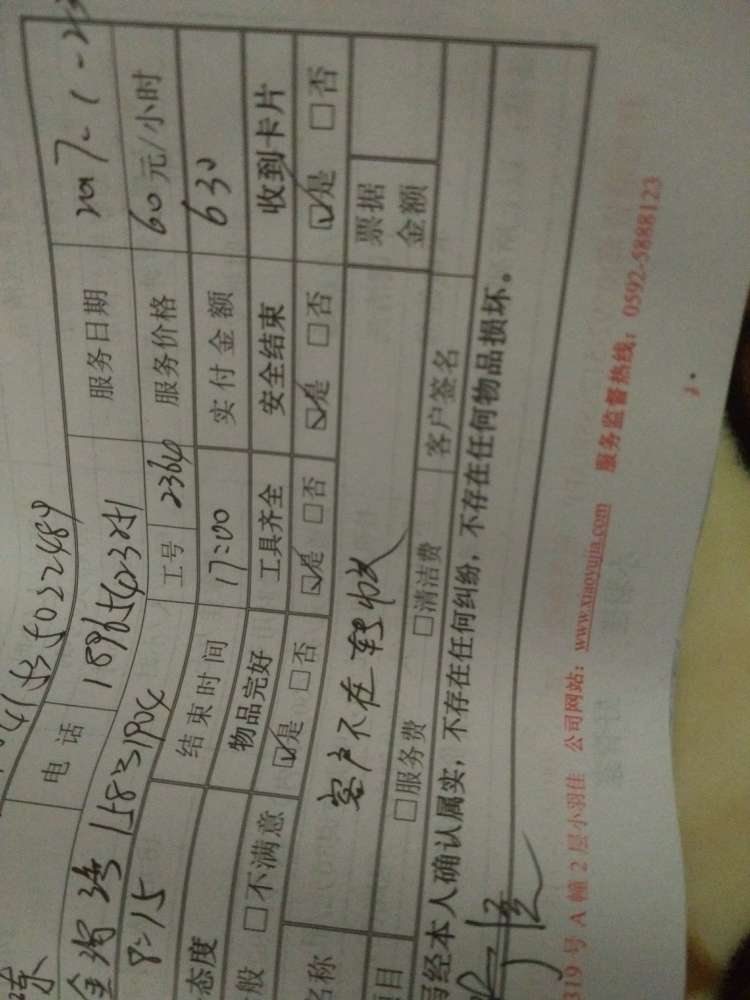 服务日期 2017-1-23
电话 18965423251
工号 2364 服务价格 60元/小时
15831904
8:15 结束时间 17:00 实付金额 630
态度 物品完好 工具齐全 安全结束 收到卡片
般 □不满意 ☑是 □否 ☑是 □否 ☑是 □否 ☑是 □否
名称 客户不在 票据金额
项目 □服务费 □清洁费 客户签名
经本人确认属实，不存在任何纠纷，不存在任何物品损坏。
319号A幢2层小羽佳 公司网站：www.xiaoyujia.com 服务监督热线：0592-5888123